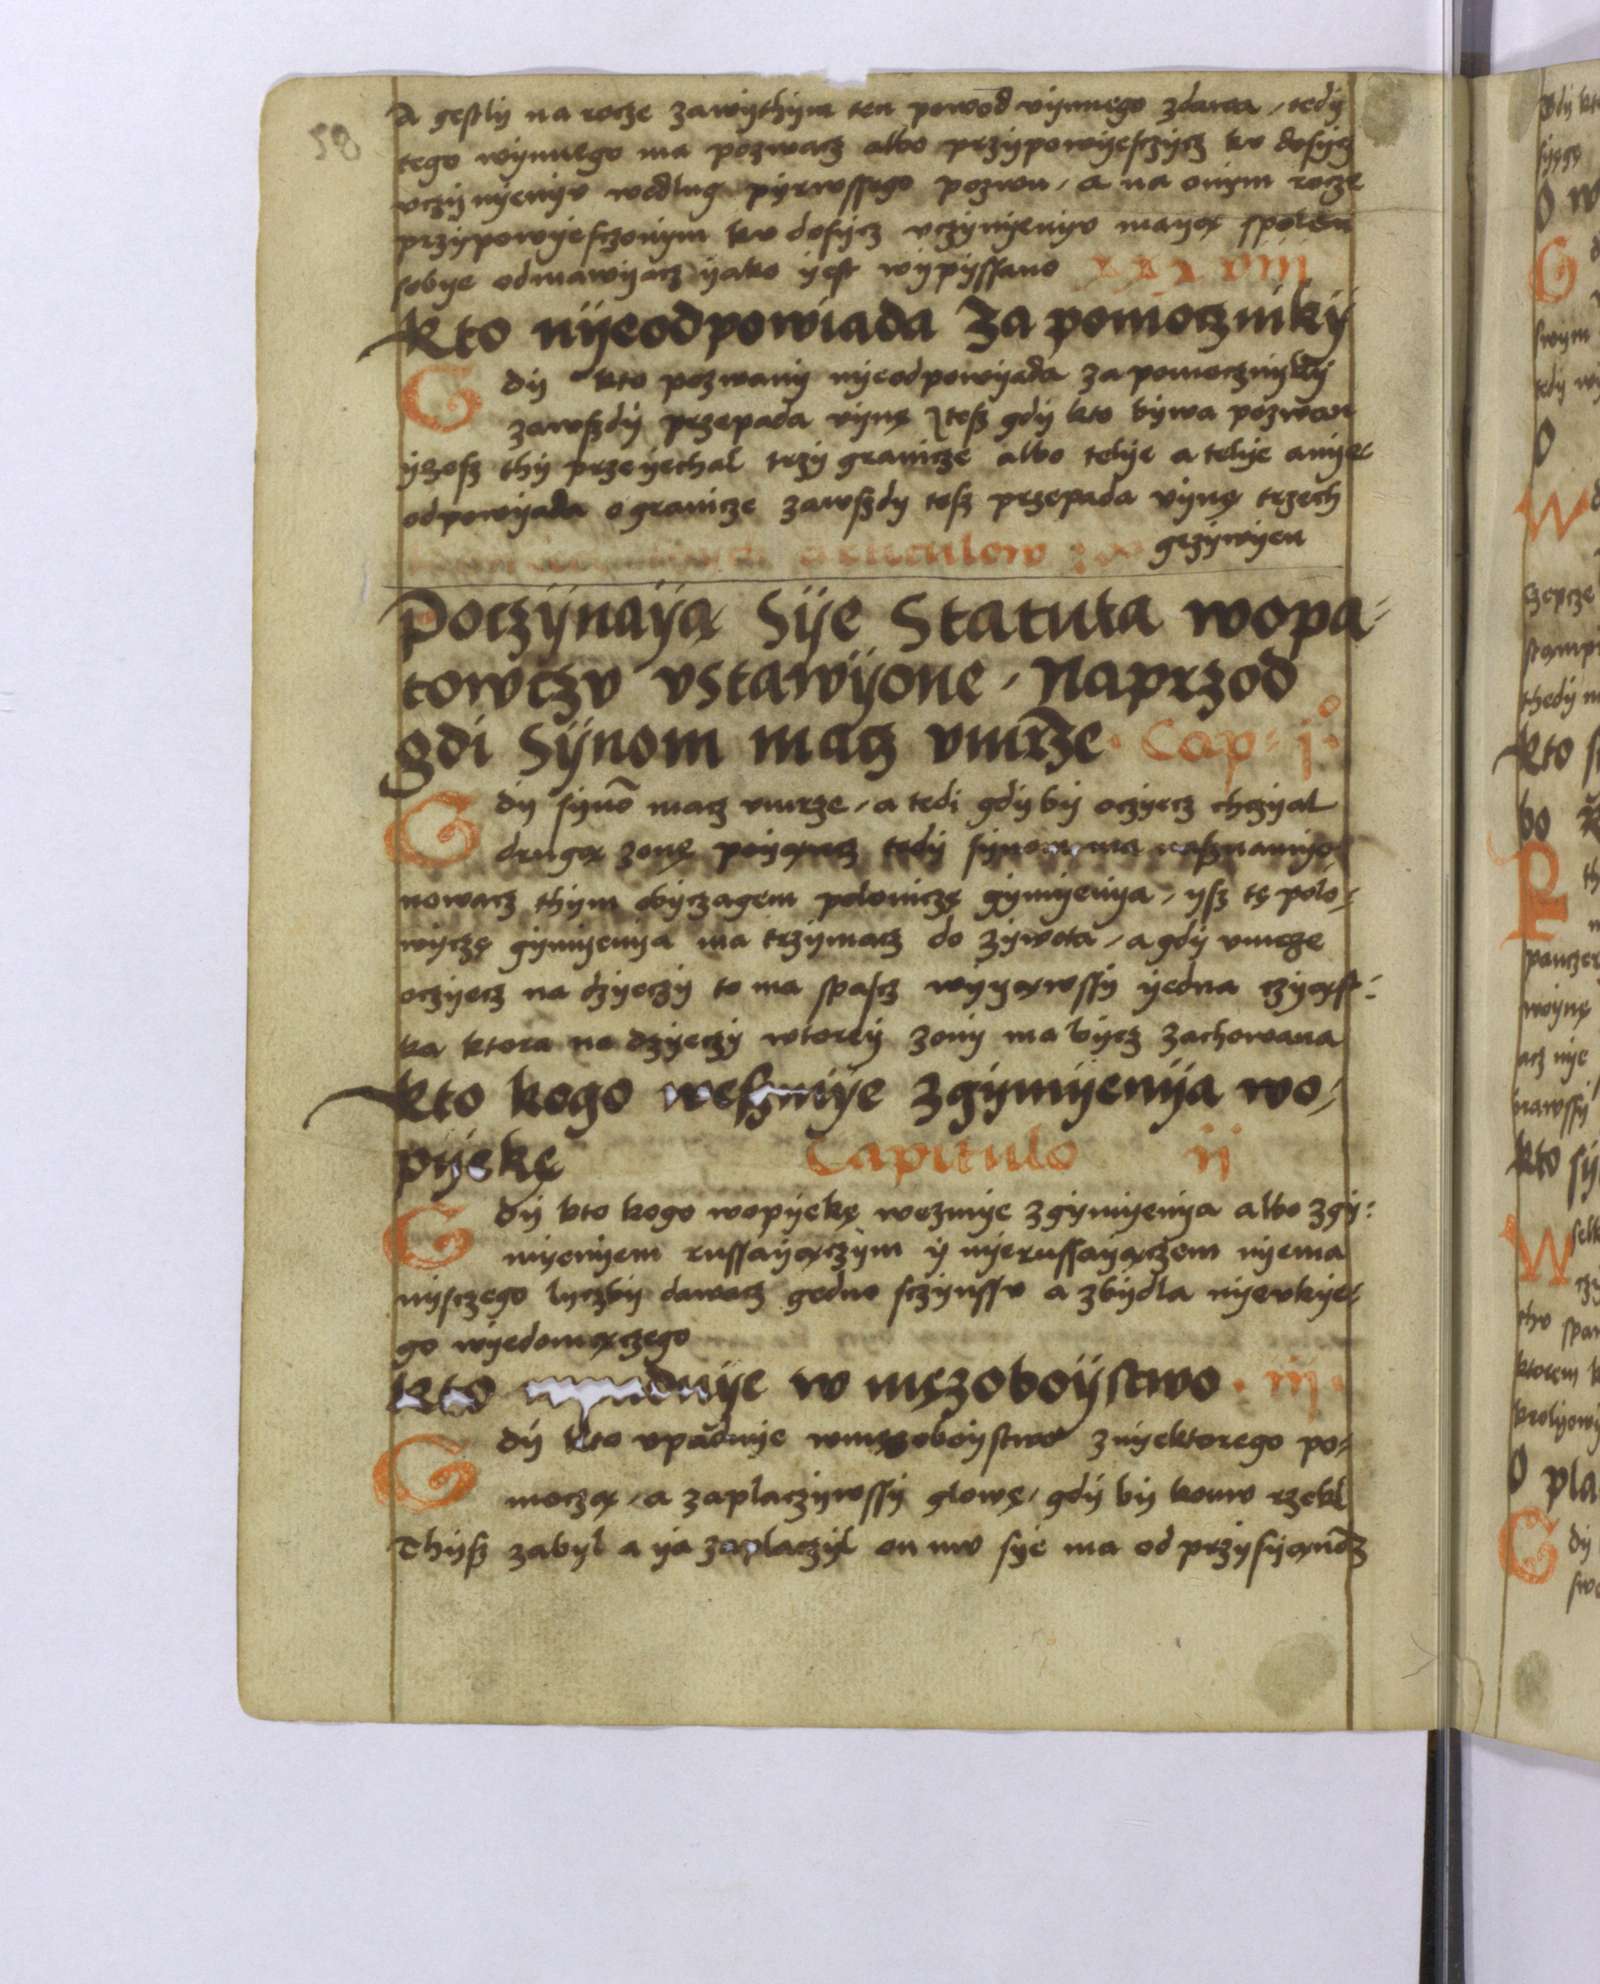 58
A gestly na rocze zawythym ten powod vynnego zdawa / tedy
tego wynnego ma pozwacz albo przypowyesczycz kv dosycz
vczynyenyv wedlug pyrwssego pozwu / a na onym rocze
przypowyesczonym kv dosycz vczynyenyv mayą spolem
sobye odmawyacz yako yest wypyssano xxxviii
Kto nyeodpowiada Za pomocznyky
Gdy kto pozwany nyeodpowyada za pomocznyky
zawszdy przepada vynę tosz gdy kto bywa pozwan
yzesz thy przeyechal trzy granicze albo telye a telye a nye
odpowyada o granicze zawszdy tosz przepada vynę trzech
grzywyen
Poczynaya Sye Statuta wopa-
towczv vstawyone / Naprzod
gdi Synom macz vmrze Cap j°
Gdy synō macz vmrze / a tedi gdyby oczyecz chczyal
drugą zonę poyącz tedy synom ma
nowacz thym obyczagem polowiczę gymyenya / ysz tę polo-
wyczę gymyenya ma trzymacz do zywota / a gdy vmrze
oczyecz na dzyeczy to ma spascz wyyąwssy yedna czyąst-
ka ktora na dzyeczy wtorey zony ma bycz zachowana
kto kogo weszmye zgymyenya wo-
pyekę Capitulo ij
Gdy kto kogo wopyekę wezmye zgymyenya albo zgy-
myenyem russayączym y nyerussayączem nyema
nysczego lyczby dawacz gedno sczynssv a zbydla nyevkye-
go wyedomączego
kto w męzoboystwo iij
Gdy kto vpadnye wmęzoboystwo znyektorego po-
moczą / a zaplaczywssy glowę / gdy by komv rzekl
Thysz zabyl a ya zaplaczyl on mv sye ma odprzysyąndz